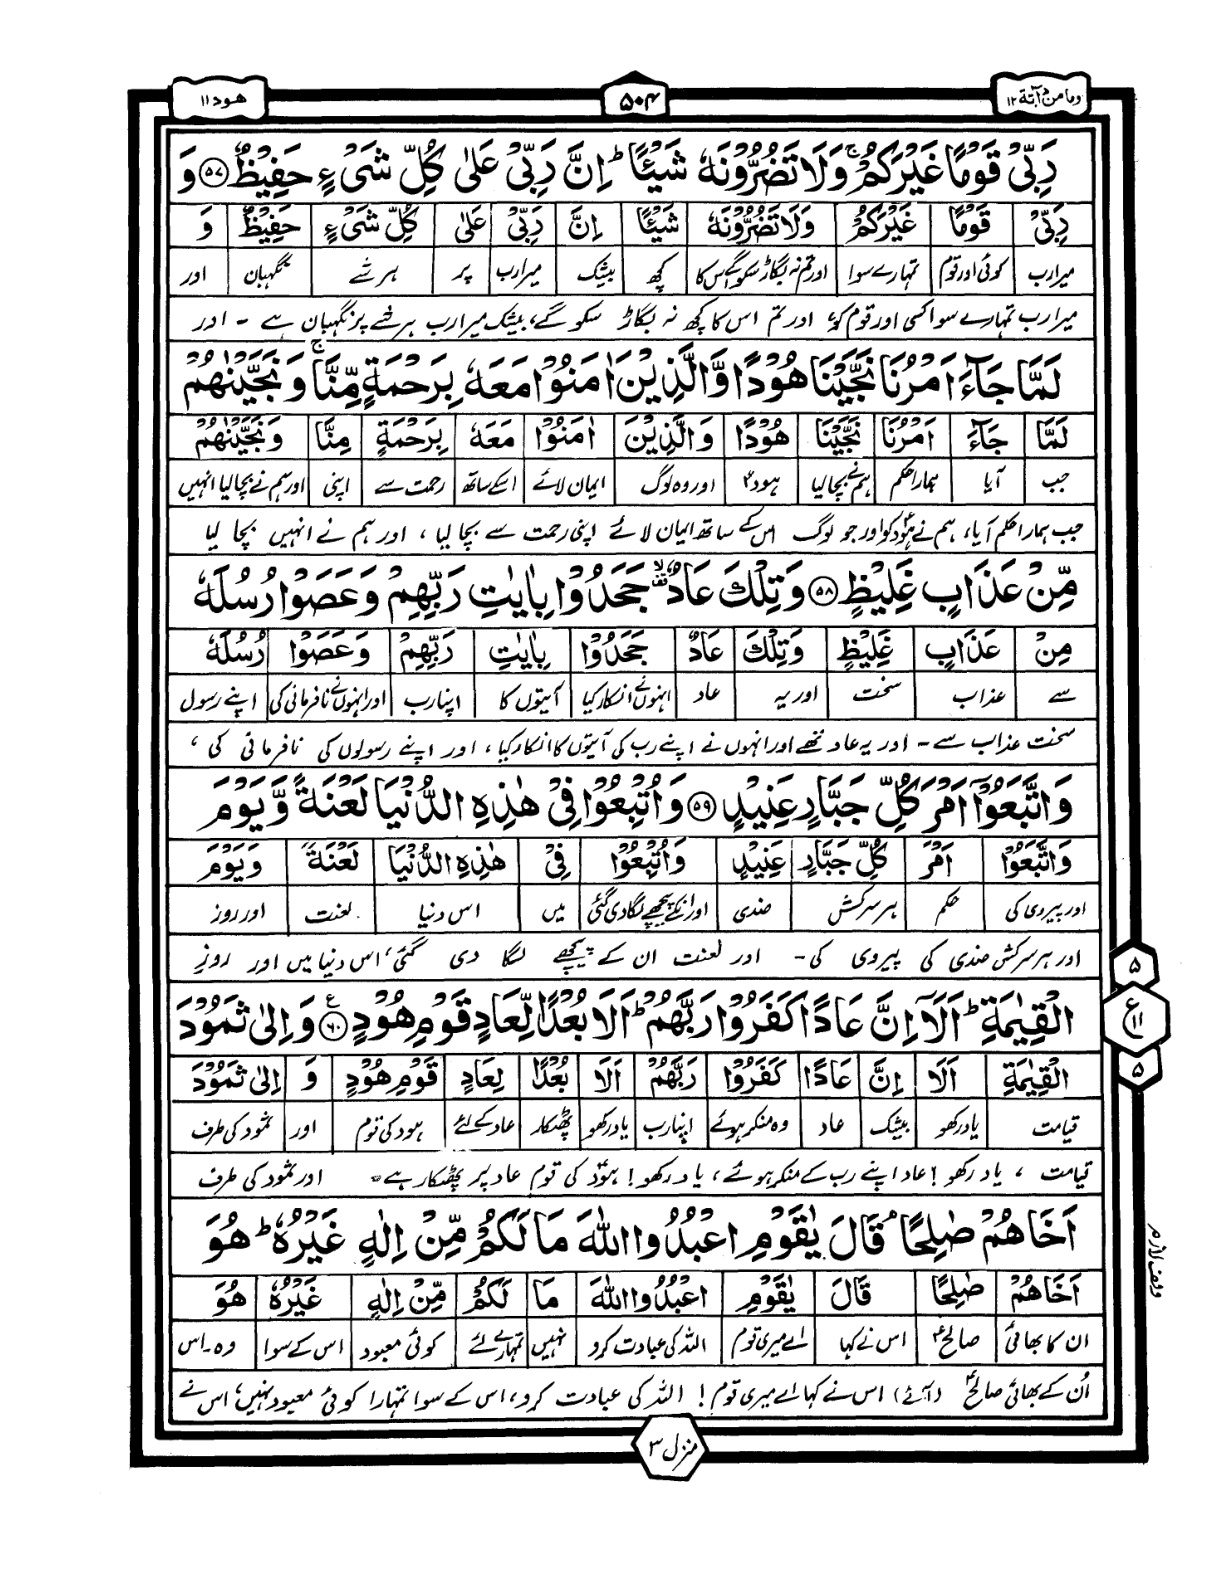 وما من دآبة ۱۲
۵۰۴
ھود ۱۱
رَبِّیْ قَوْمًا غَیْرَكُمْ ۚ وَلَا تَضُرُّوْنَهٗ شَیْـًٔا ؕ اِنَّ رَبِّیْ عَلٰی كُلِّ شَیْءٍ حَفِیْظٌ ۝۵۷ وَ
رَبِّیْ قَوْمًا غَیْرَكُمْ وَلَا تَضُرُّوْنَهٗ شَیْـًٔا اِنَّ رَبِّیْ عَلٰی كُلِّ شَیْءٍ حَفِیْظٌ وَ
میرا رب کوئی اور قوم تمہارے سوا اور تم نہ بگاڑ سکو گے اس کا کچھ بیشک میرا رب پر ہر شے نگہبان اور
میرا رب تمہارے سوا کسی اور قوم کو، اور تم اس کا کچھ نہ بگاڑ سکو گے، بیشک میرا رب ہر شے پر نگہبان ہے - اور
لَمَّا جَآءَ اَمْرُنَا نَجَّیْنَا هُوْدًا وَّالَّذِیْنَ اٰمَنُوْا مَعَهٗ بِرَحْمَةٍ مِّنَّا ۚ وَنَجَّیْنٰهُمْ
لَمَّا جَآءَ اَمْرُنَا نَجَّیْنَا هُوْدًا وَالَّذِیْنَ اٰمَنُوْا مَعَهٗ بِرَحْمَةٍ مِنَّا وَنَجَّیْنٰهُمْ
جب آیا ہمارا حکم ہم نے بچا لیا ہودؑ اور وہ لوگ ایمان لائے اسکے ساتھ رحمت سے اپنی اور ہم نے بچا لیا انہیں
جب ہمارا حکم آیا، ہم نے ہودؑ کو اور جو لوگ اس کے ساتھ ایمان لائے اپنی رحمت سے بچا لیا، اور ہم نے انہیں بچا لیا
مِّنْ عَذَابٍ غَلِیْظٍ ۝۵۸ وَتِلْكَ عَادٌ ۙ جَحَدُوْا بِاٰیٰتِ رَبِّهِمْ وَعَصَوْا رُسُلَهٗ
مِنْ عَذَابٍ غَلِیْظٍ وَتِلْكَ عَادٌ جَحَدُوْا بِاٰیٰتِ رَبِّهِمْ وَعَصَوْا رُسُلَهٗ
سے عذاب سخت اور یہ عاد انہوں نے انکار کیا آیتوں کا اپنا رب اور انہوں نے نافرمانی کی اپنے رسول
سخت عذاب سے - اور یہ عاد تھے اور انہوں نے اپنے رب کی آیتوں کا انکار کیا، اور اپنے رسولوں کی نافرمانی کی،
وَاتَّبَعُوْۤا اَمْرَ كُلِّ جَبَّارٍ عَنِیْدٍ ۝۵۹ وَاُتْبِعُوْا فِیْ هٰذِهِ الدُّنْیَا لَعْنَةً وَّیَوْمَ
وَاتَّبَعُوْۤا اَمْرَ كُلِّ جَبَّارٍ عَنِیْدٍ وَاُتْبِعُوْا فِیْ هٰذِهِ الدُّنْیَا لَعْنَةً وَیَوْمَ
اور پیروی کی حکم ہر سرکش ضدی اور انکے پیچھے لگا دی گئی میں اس دنیا لعنت اور روز
اور ہر سرکش ضدی کی پیروی کی - اور لعنت ان کے پیچھے لگا دی گئی، اس دنیا میں اور روزِ
الْقِیٰمَةِ ؕ اَلَاۤ اِنَّ عَادًا كَفَرُوْا رَبَّهُمْ ؕ اَلَا بُعْدًا لِّعَادٍ قَوْمِ هُوْدٍ ۝۶۰ ع وَاِلٰی ثَمُوْدَ
الْقِیٰمَةِ اَلَاۤ اِنَّ عَادًا كَفَرُوْا رَبَّهُمْ اَلَا بُعْدًا لِعَادٍ قَوْمِ هُوْدٍ وَ اِلٰی ثَمُوْدَ
قیامت یاد رکھو بیشک عاد وہ منکر ہوئے اپنا رب یاد رکھو پھٹکار عاد کے لئے ہود کی قوم اور ثمود کی طرف
قیامت، یاد رکھو! عاد اپنے رب کے منکر ہوئے، یاد رکھو! ہودؑ کی قوم عاد پر پھٹکار ہے۔ اور ثمود کی طرف
اَخَاهُمْ صٰلِحًا ۘ قَالَ یٰقَوْمِ اعْبُدُوا اللّٰهَ مَا لَكُمْ مِّنْ اِلٰهٍ غَیْرُهٗ ؕ هُوَ
اَخَاهُمْ صٰلِحًا قَالَ یٰقَوْمِ اعْبُدُوا اللّٰهَ مَا لَكُمْ مِّنْ اِلٰهٍ غَیْرُهٗ هُوَ
ان کا بھائی صالحؑ اس نے کہا اے میری قوم اللہ کی عبادت کرو نہیں تمہارے لئے کوئی معبود اس کے سوا وہ - اس
اُن کے بھائی صالحؑ (آئے) اس نے کہا اے میری قوم! اللہ کی عبادت کرو، اس کے سوا تمہارا کوئی معبود نہیں، اس نے
۵
ع
۱۱
۵
وقف لازم
منزل ۳